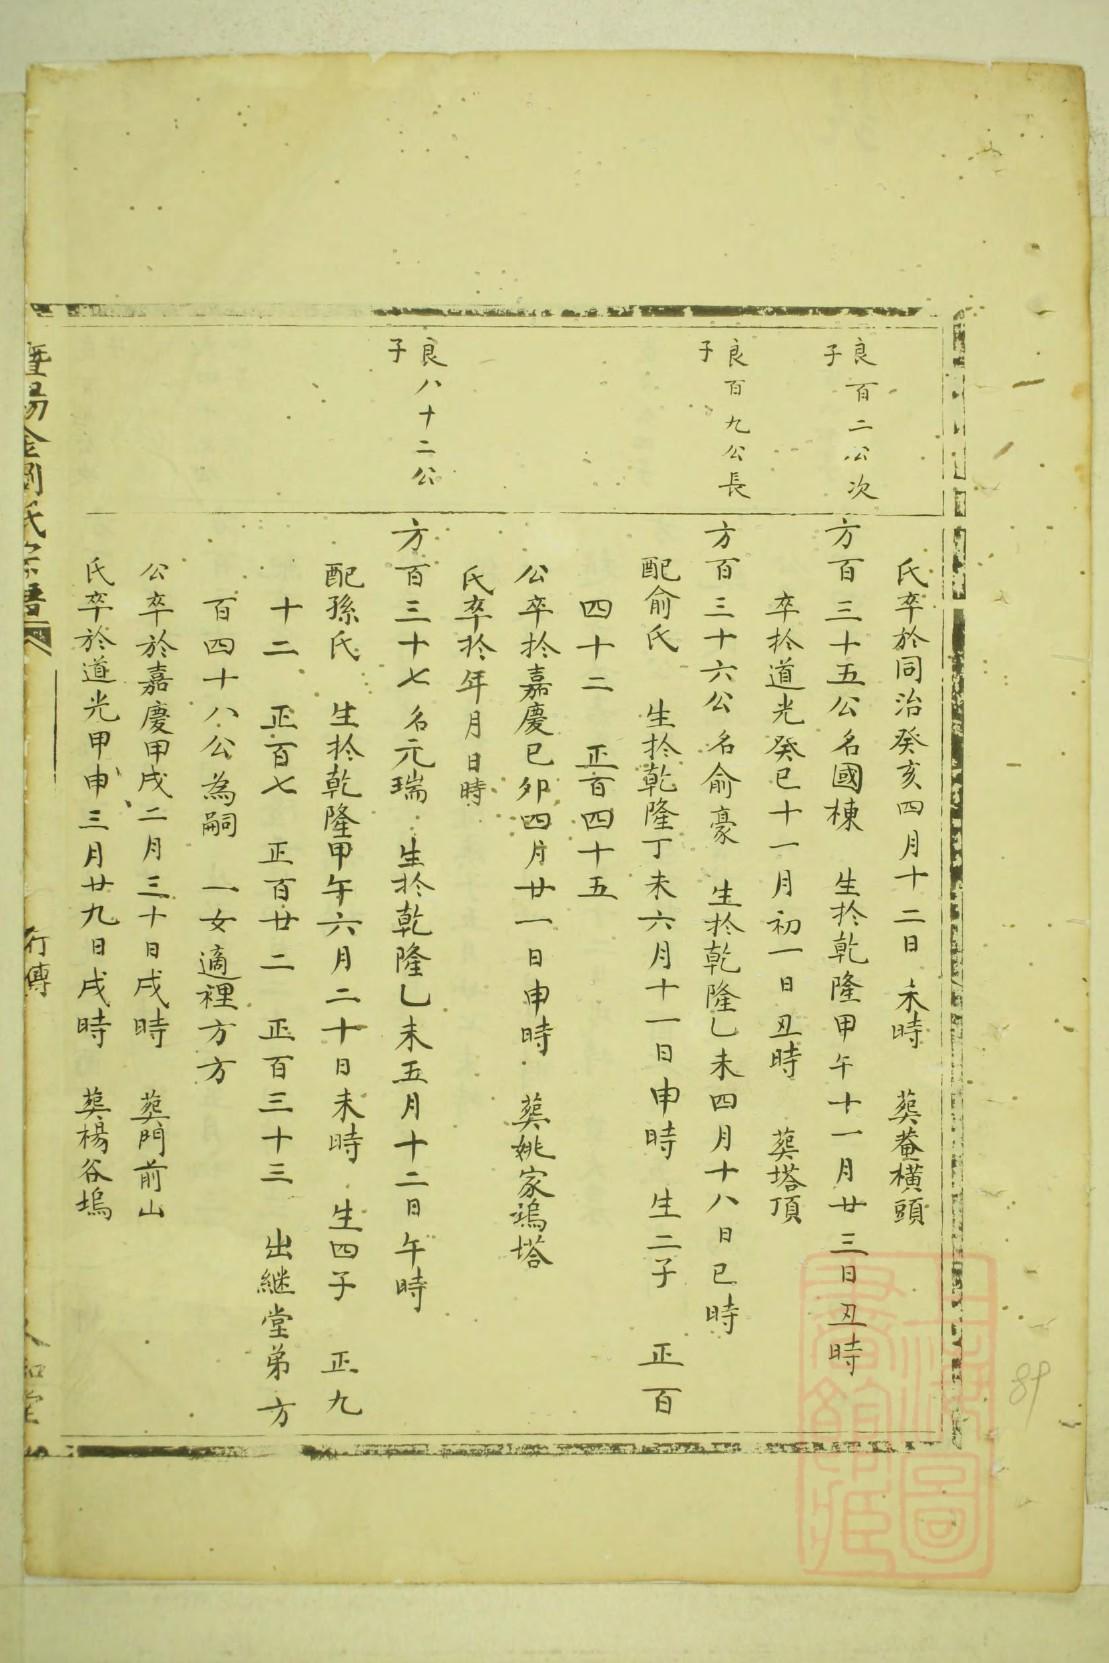 氏卒於同治癸亥四月十二日 未時 葬菴橫頭
良百二公次
子
方百三十五公名國棟 生於乾隆甲午十一月廿三日丑時
卒於道光癸巳十一月初一日丑時 葬塔頂
良百九公長
子
方百三十六公名俞豪 生於乾隆乙未四月十八日巳時
配俞氏 生於乾隆丁未六月十一日申時 生二子 正百
四十二 正百四十五
公卒於嘉慶己卯四月廿一日申時 葬姚家塢塔
氏卒於年月日時
良八十二公
子
方百三十七名元瑞 生於乾隆乙未五月十二日午時
配孫氏 生於乾隆甲午六月二十日未時 生四子 正九
十二 正百七 正百廿二 正百三十三 出継堂弟方
百四十八公為嗣 一女適裡方方
公卒於嘉慶甲戌二月三十日戌時 葬門前山
氏卒於道光甲申三月廿九日戌時 葬楊谷塢
暨陽金 氏宗譜
行傳
上海圖
書館藏
89